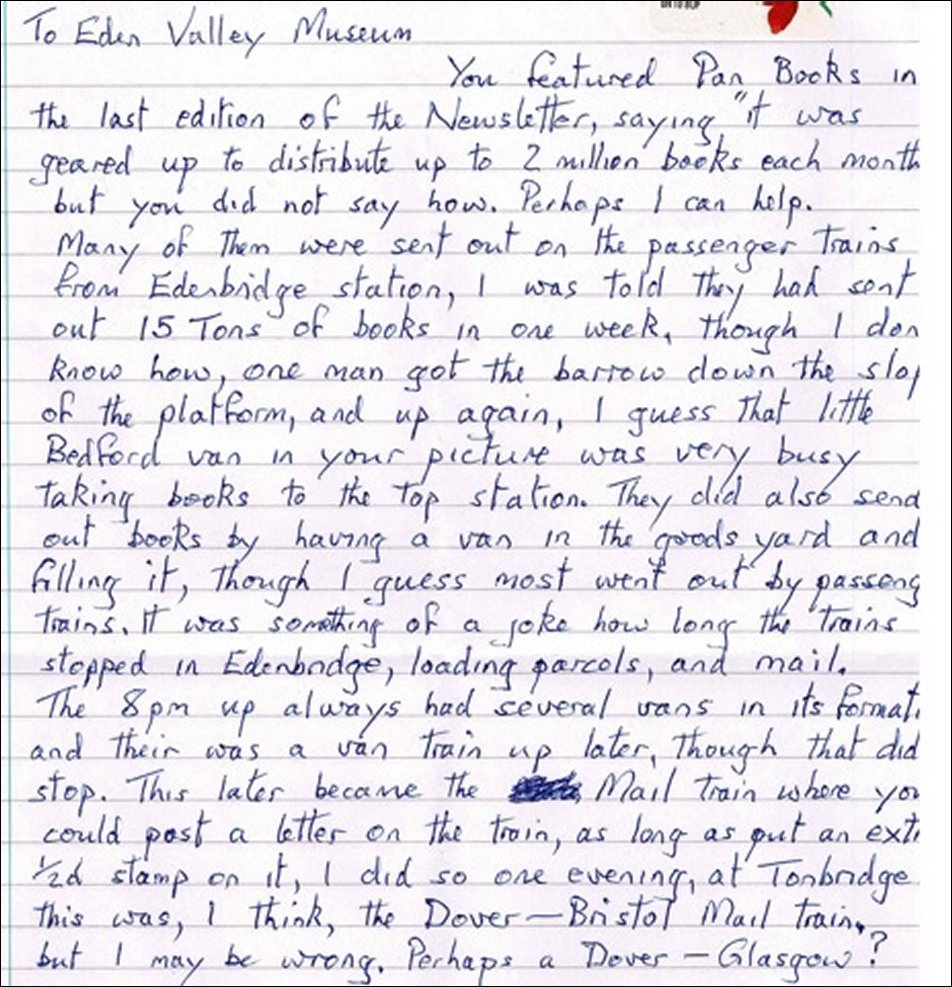 To Eden Valley Museum
You featured Pan Books in
the last edition of the Newsletter, saying "it was
geared up to distribute up to 2 million books each month
but you did not say how. Perhaps I can help.
Many of them were sent out on the passenger trains
from Edenbridge station, I was told they had sent
out 15 Tons of books in one week, though I don
know how, one man got the barrow down the slop
of the platform, and up again, I guess that little
Bedford van in your picture was very busy
taking books to the top station. They did also send
out books by having a van in the goods yard and
filling it, though I guess most went out by passeng
trains. It was something of a joke how long the trains
stopped in Edenbridge, loading parcels, and mail.
The 8pm up always had several vans in its formati
and their was a van train up later, though that did
stop. This later became the Mail train where you
could post a letter on the train, as long as put an extr
½d stamp on it, I did so one evening, at Tonbridge
this was, I think, the Dover—Bristol Mail train,
but I may be wrong. Perhaps a Dover — Glasgow?